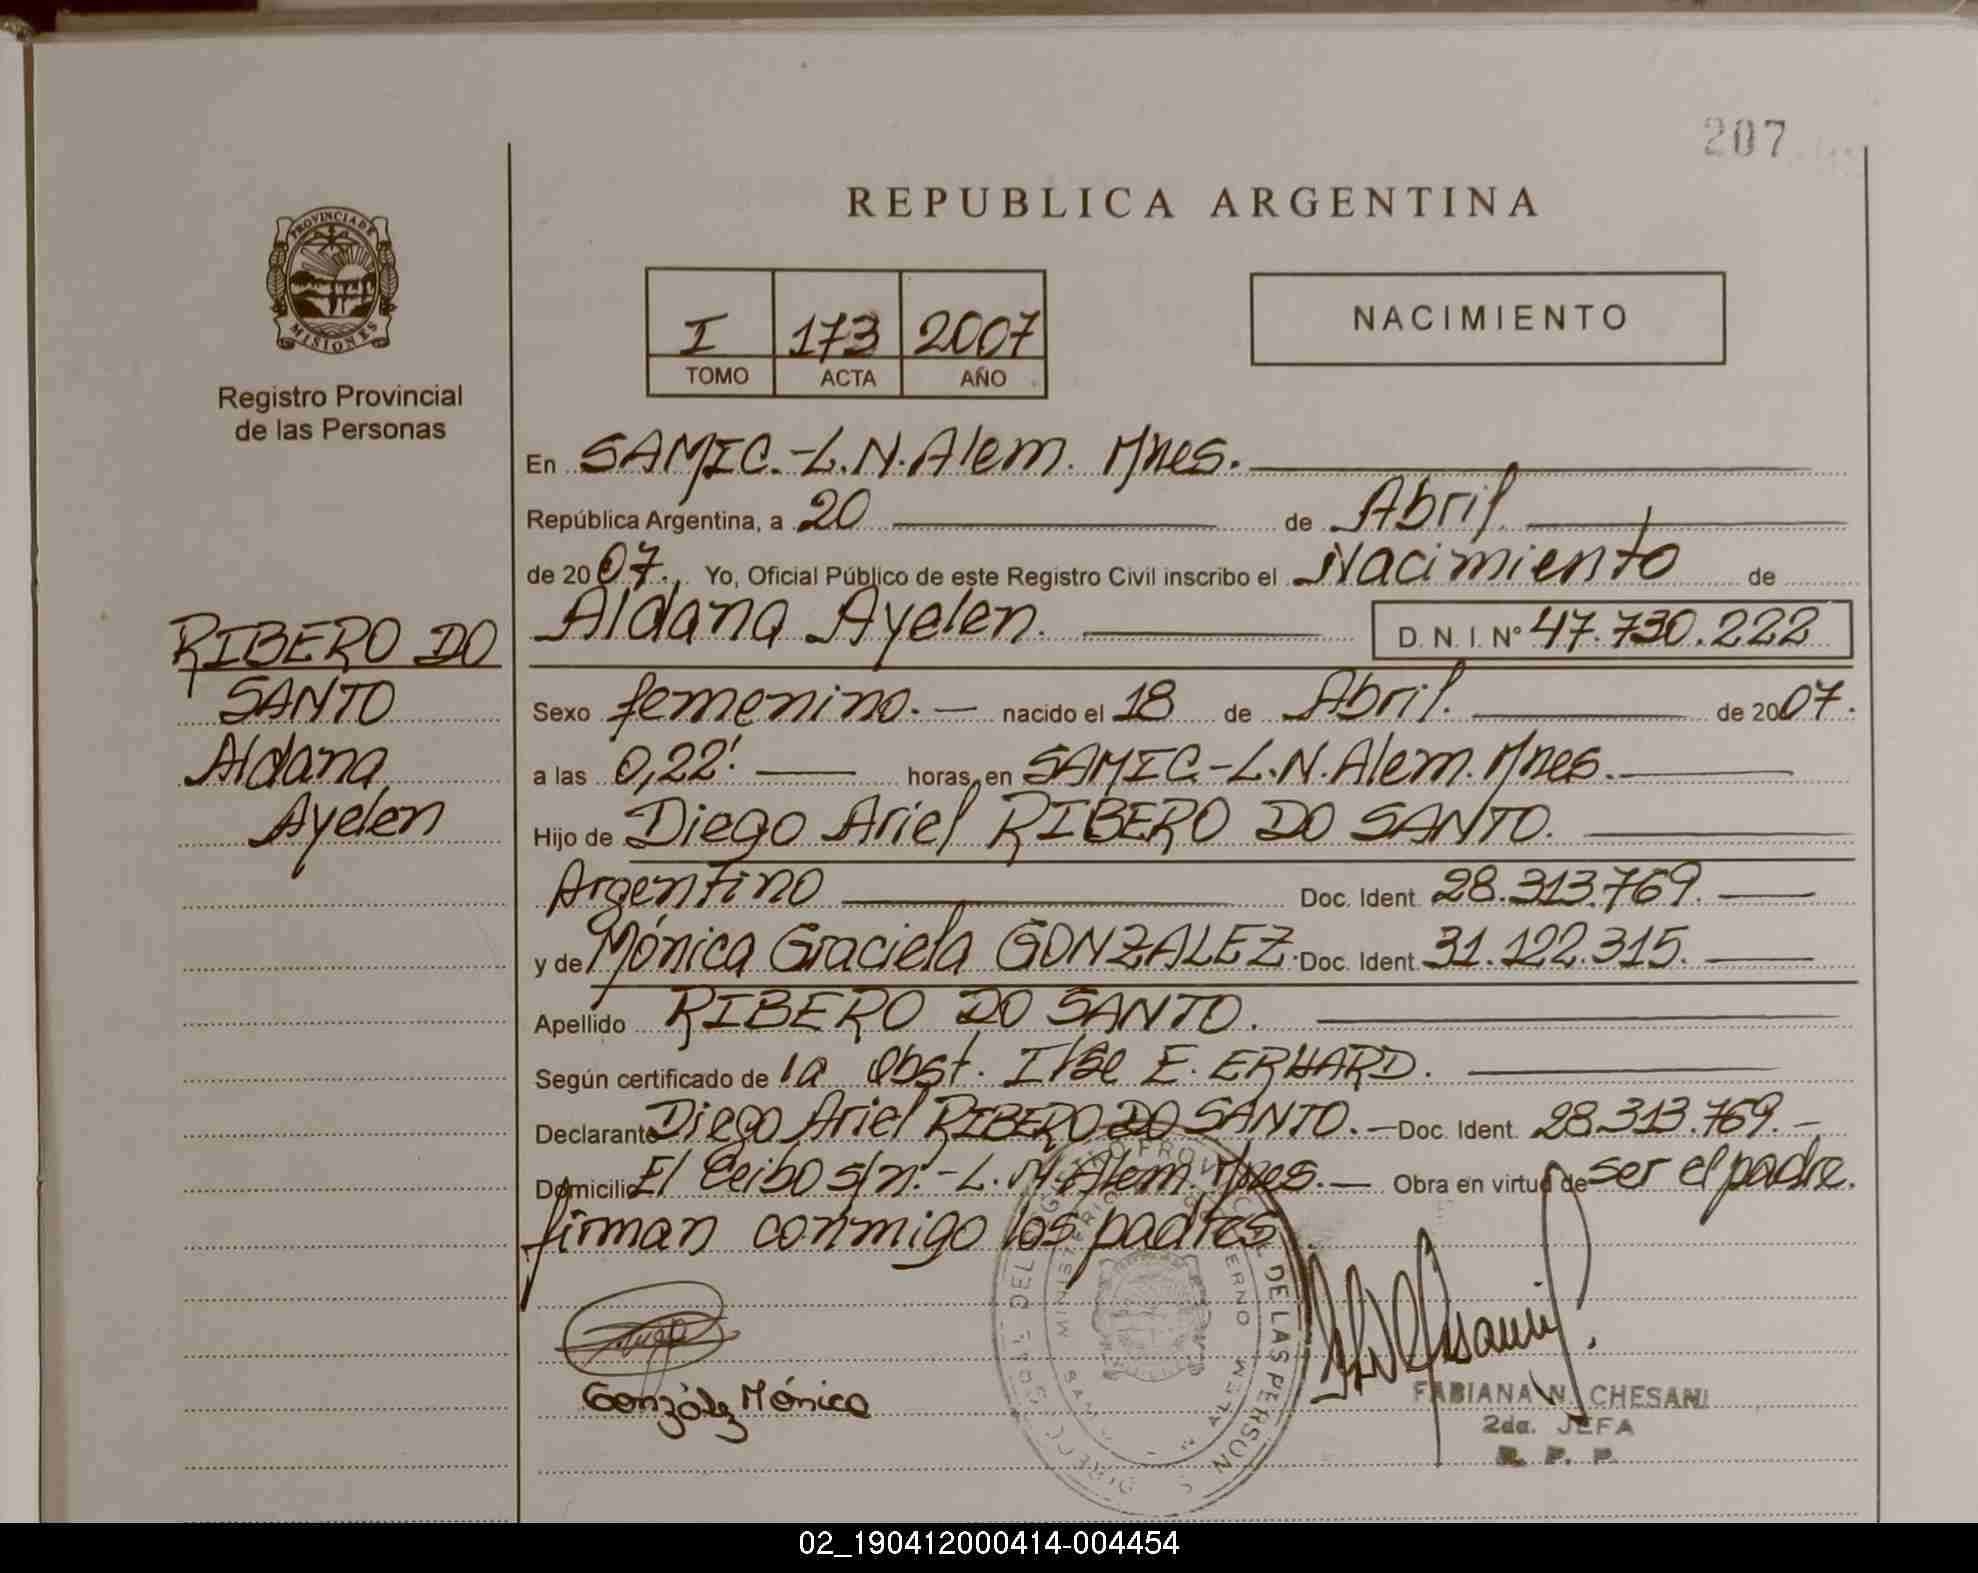 207
REPUBLICA ARGENTINA
PROVINCIA DE
MISIONES
Registro Provincial
de las Personas
I 173 2007
TOMO ACTA AÑO
NACIMIENTO
En SAMIC.-L.N.Alem. Mnes.
República Argentina, a 20 de Abril.
de 2007. Yo, Oficial Público de este Registro Civil inscribo el Nacimiento de
Aldana Ayelen. D. N. I. Nº 47.730.222
RIBERO DO
SANTO
Aldana
Ayelen
Sexo femenino.- nacido el 18 de Abril. de 2007.
a las 0,22' horas, en SAMIC.-L.N.Alem. Mnes.
Hijo de Diego Ariel RIBERO DO SANTO.
Argentino Doc. Ident. 28.313.769.
y de Mónica Graciela GONZALEZ. Doc. Ident. 31.122.315.
Apellido RIBERO DO SANTO.
Según certificado de la Obst. Ilse E. ERHARD.
Declarante Diego Ariel RIBERO DO SANTO.- Doc. Ident. 28.313.769.-
Domicilio El Ceibo s/n.-L.N.Alem. Mnes.- Obra en virtud de ser el padre.
firman conmigo los padres
González Mónica
FABIANA N. CHESANI
2da. JEFA
R. P. P.
02_190412000414-004454